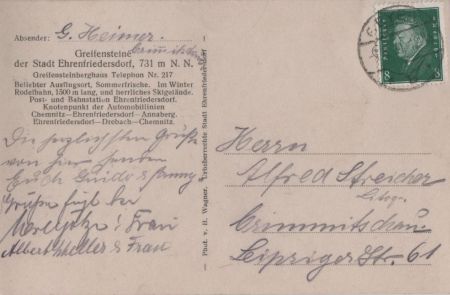 Absender: G. Heimer.
Crimmitschau
Greifensteine
der Stadt Ehrenfriedersdorf, 731 m N. N.
Greifensteinberghaus Telephon Nr. 217
Beliebter Ausflugsort, Sommerfrische. Im Winter
Rodelbahn, 1500 m lang, und herrliches Skigelände.
Post- und Bahnstation Ehrenfriedersdorf.
Knotenpunkt der Automobillinien
Chemnitz—Ehrenfriedersdorf—Annaberg.
Ehrenfriedersdorf—Drebach—Chemnitz.
Die herzlichsten Grüße
von hier senden
Euch Guido &
Grüße fügt bei
Frau
Albert & Frau
Phot. v. H. Wagner. Urheberrechte Stadt Ehrenfriedersdorf
8 8
Herrn
Alfred Streicher
Crimmitschau
Leipziger Str. 61